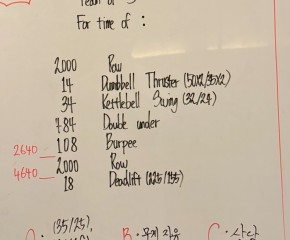 Team of
For time of :
2000 Row
14 Dumbbell Thruster (50x2/35x2)
34 Kettlebell Swing (32/24)
784 Double under
2640 108 Burpee
4640 2000 Row
18 Deadlift (225/155)
(35/25),
B · 무게 자유
C ·